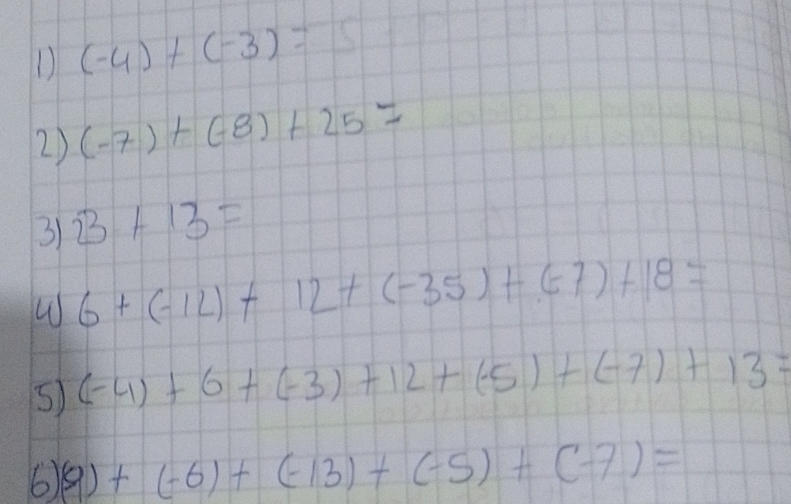 1) (-4) + (-3) =
2) (-7) + (-8) + 25 =
3) 23 + 13 =
4) 6 + (-12) + 12 + (-35) + (-7) + 18 =
5) (-4) + 6 + (-3) + 12 + (-5) + (-7) + 13 =
6) (9) + (-6) + (-13) + (-5) + (-7) =